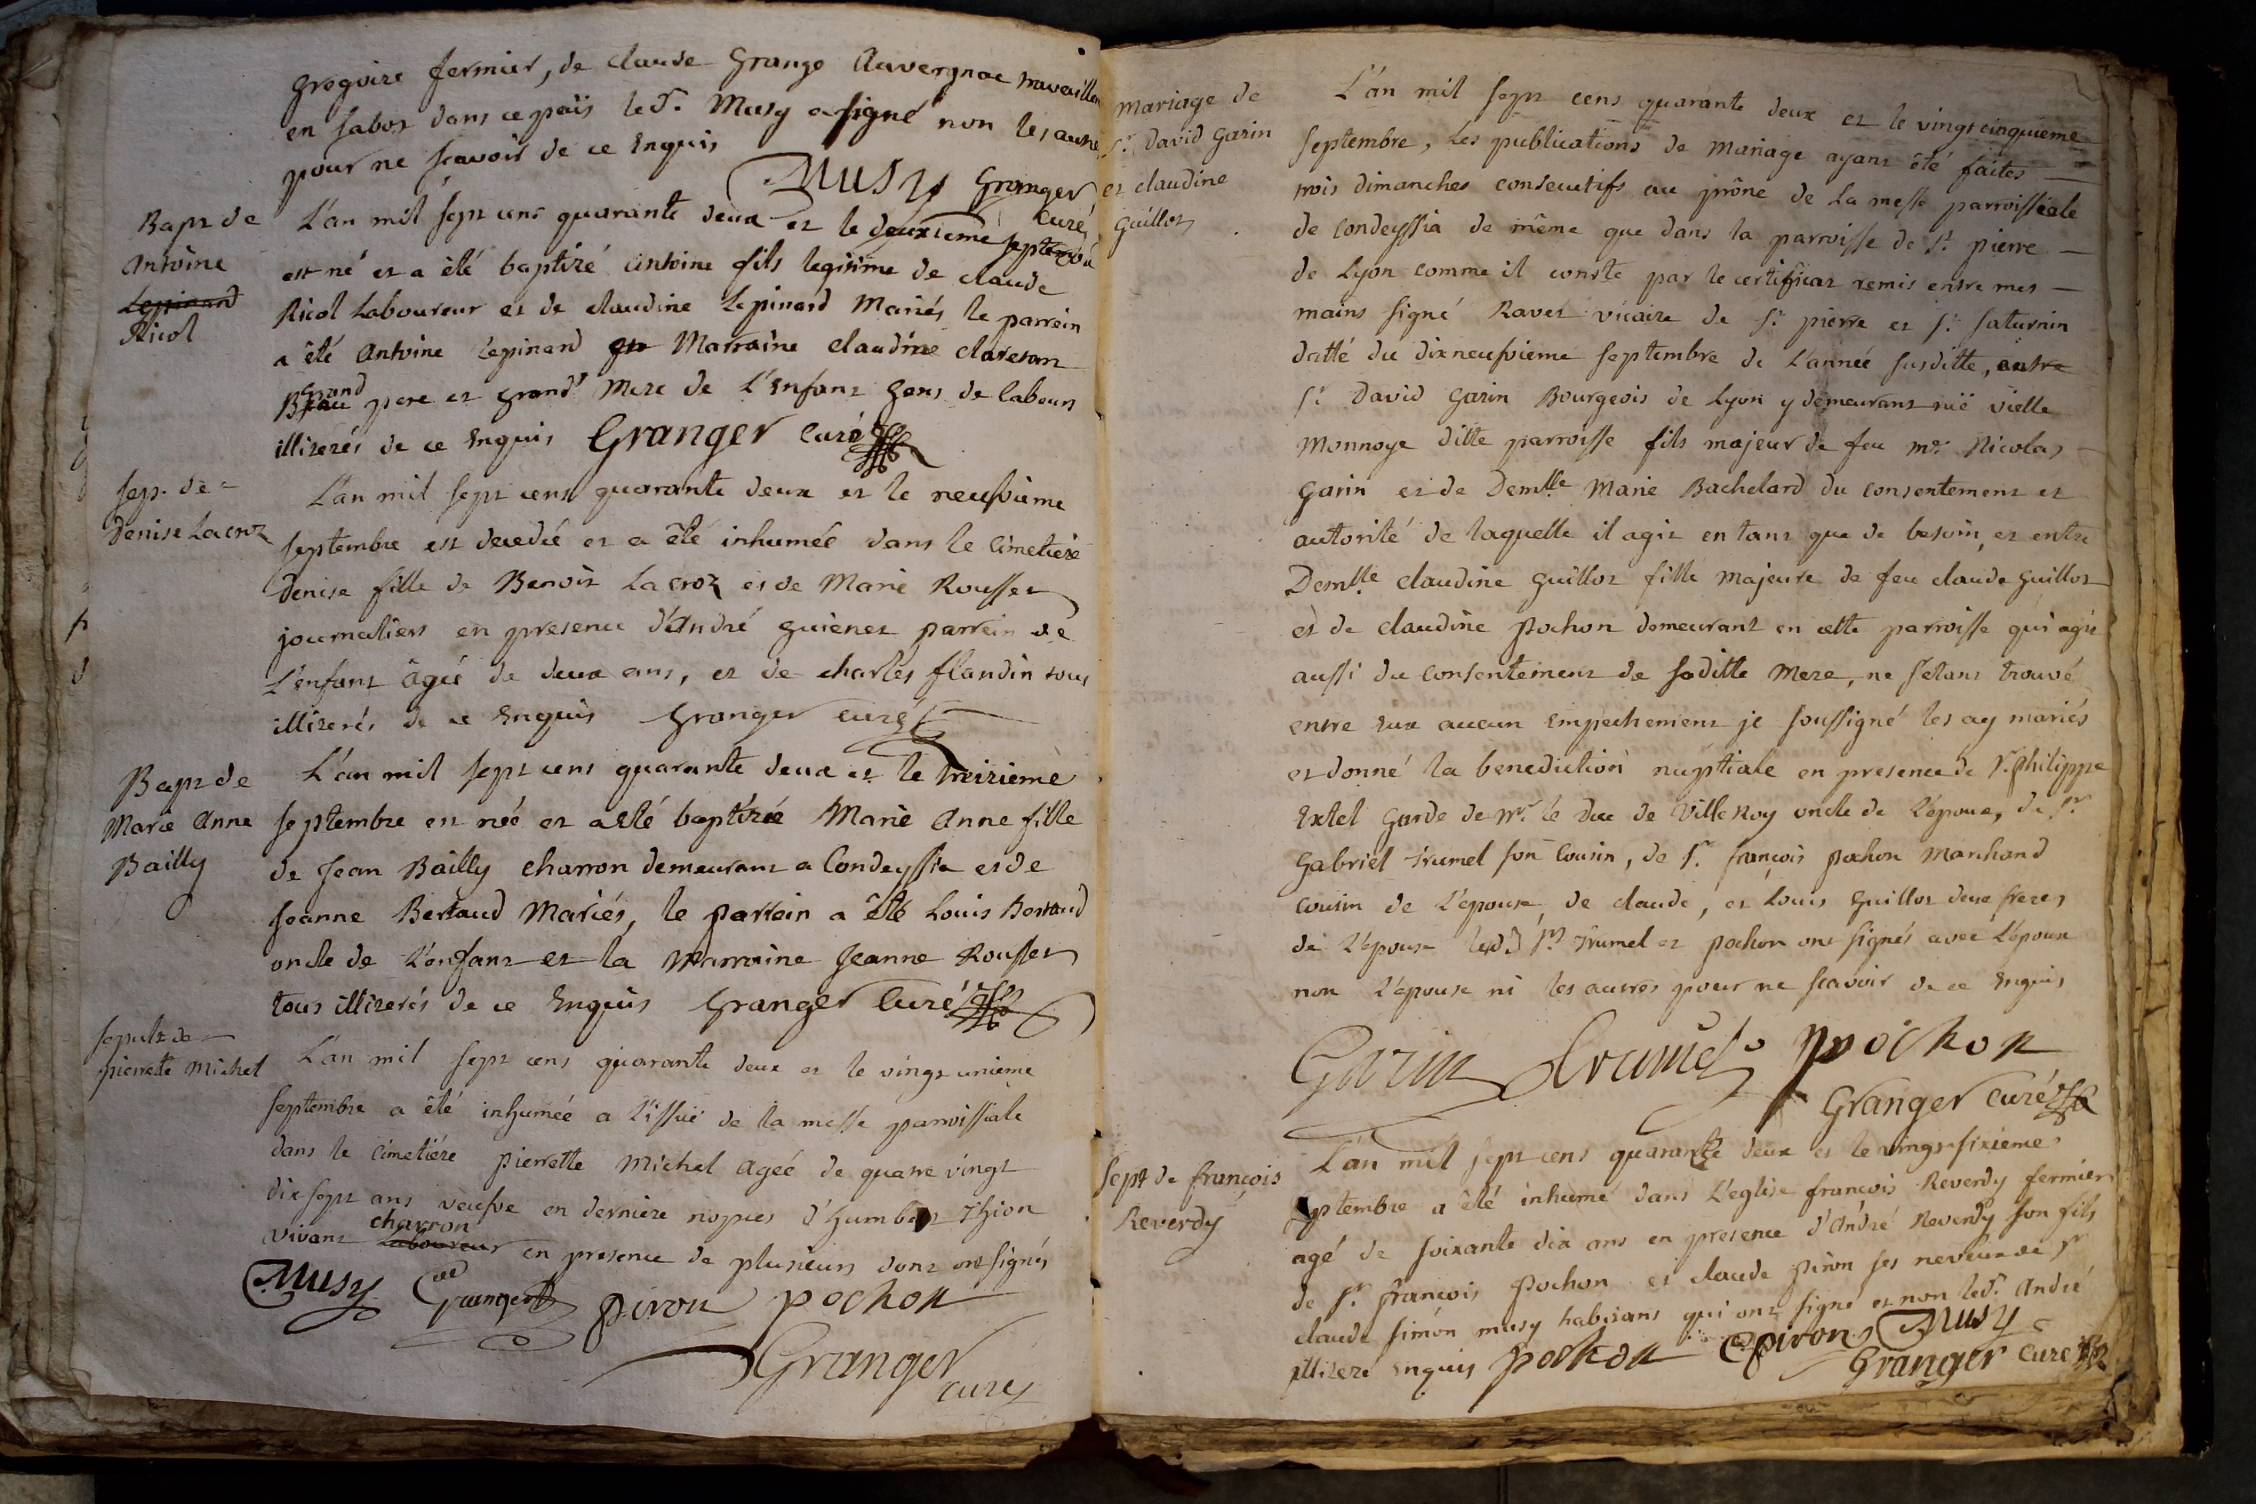 gregoire fermier, de claude Grange Auvergnac travaillan
en sabot dans ce païs led.r Musy a signé non les autre
pour ne scavoir de ce Enquis
Musy Granger
curé
Bapt de
Antoine
Lepinard
Ricol
L'an mil sept cens quarante deux et le deuxieme septembre
est né et a été baptizé antoine fils legitime de claude
Ricol Laboureur et de claudine Lepinard Mariés le parrein
a été Antoine Lepinard et Marraine claudine claretan
grand
pere et grand' Mere de L'Enfant gens de labeur
illiterés de ce Enquis Granger curé
sep. de
Denise Lacroz
L'an mil sept cens quarante deux et le neufvieme
septembre est decedée et a été inhumée dans le cimetiere
Denise fille de Benoit Lacroz et de Marie Rousset
journaliers en presence d'André guienet parrein de
L'enfant âgée de deux ans, et de charles flandin tous
illiterés de ce Enquis Granger curé
Bapt de
Marie Anne
Bailly
L'an mil sept cens quarante deux et le treizieme
septembre est née et a eté baptizée Marie Anne fille
de Jean Bailly charron demeurant a Condeyssia et de
Jeanne Bertaud Mariés, le parrein a été Louis Bertaud
oncle de L'enfant et la Marraine Jeanne Rousset
tous illiterés de ce Enquis Granger Curé
sepult de
pierrette Michel
L'an mil sept cens quarante deux et le vingt unieme
septembre a été inhumée a L'issuë de la messe parroissiale
dans le Cimetiére pierrette Michel agée de quatre vingt
dix sept ans veufve en derniere nopces d'humbert Thion
charron
vivant laboureur en presence de plusieurs dont ont signés
Musy Granger piron pochon
Granger
curé
mariage de
s.r David Garin
et claudine
Guillot
L'an mil sept cens quarante deux et le vingt cinquieme
septembre, Les publications de Mariage ayant été faites
trois dimanches consecutifs au prône de La messe parroissiale
de Condeyssia de même que dans la parroisse de s.t pierre
de Lyon comme il conste par le certificat remis entre mes
mains signé Ravet vicaire de s.t pierre et s.t saturnin
datté du dixneufvieme septembre de L'année susditte, entre
s.r David Garin Bourgeois de Lyon y demeurant ruë vielle
Monnoye ditte parroisse fils majeur de feu m.r Nicolas
Garin et de Dem.lle Marie Bachelard du consentement et
autorité de laquelle il agit en tant que de besoin, et entre
Dem.lle claudine Guillot fille Majeure de feu claude Guillot
et de claudine Pochon demeurant en cette parroisse qui agit
aussi du consentement de saditte Mere, ne s'etant trouvé
entre Eux aucun Empechement je soussigné les ay mariés
et donné la benediction nuptiale en presence de s.r philippe
Extel Garde de M.r le Duc de Ville Roy oncle de L'epoux, de s.r
Gabriel Trumel son Cousin, de s.r françois pochon Marchand
cousin de L'epouse, de claude, et Louis Guillot deux freres
de L'epouse lesd. s.rs Trumel et pochon ont signés avec L'époux
non L'epouse ni les autres pour ne scavoir de ce Enquis
Garin Trumel pochon
Granger curé
sept de françois
Reverdy
L'an mil sept cens quarante deux et le vingt sixieme
septembre a été inhumé dans L'eglise françois Reverdy fermier
agé de soixante dix ans en presence d'André Reverdy son fils
de s.r françois Pochon et claude piron ses neveux de s.r
claude simon musy habitans qui ont signé et non led.t André
illiteré Enquis pochon Cpiron Musy
Granger Curé